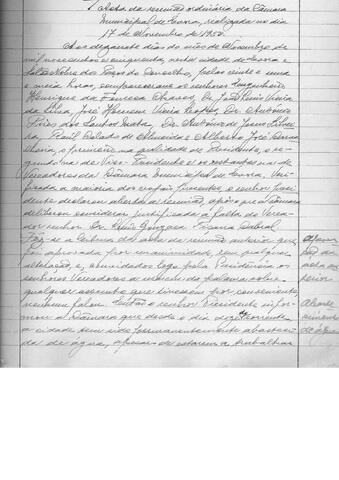 Acta da reunião ordinária da Câmara
Municipal de Évora, realizada no dia
17 de Novembro de 1950.
Aos dezassete dias do mês de Novembro de
mil novecentos e cinquenta, nesta cidade de Évora e
Salão Nobre dos Paços do Concelho, pelas vinte e uma
e meia horas, compareceram os senhores Engenheiro
Henrique da Fonseca Chaves, Dr. João Luís Vieira
da Silva, José Homem Vieira, Dr. António
dos Santos, Dr. António
Raúl Salado de Almeida e Alberto José
, o primeiro na qualidade de Presidente, o se-
gundo na de Vice-Presidente e os restantes na de
Vereadores da Câmara Municipal de Évora. Veri-
ficada a maioria dos vogais presentes, o senhor Presi-
dente declarou aberta a reunião, após o que a Câmara
deliberou considerar justificada a falta do Verea-
dor senhor Dr. Luís Gonzaga Cabral
Fez-se a leitura da acta da reunião anterior que
foi aprovada por unanimidade, sem qualquer
alteração, e, convidados logo pela Presidência os
senhores Vereadores a usarem da palavra sobre
qualquer assunto que tivessem por conveniente,
nenhum falou. O senhor Presidente infor-
mou a Câmara que desde o dia do corrente
a cidade tem sido permanentemente abasteci-
da de água, apesar de estarem a trabalhar
Aprova-
ção da
acta an-
terior
Abaste-
cimento
de água